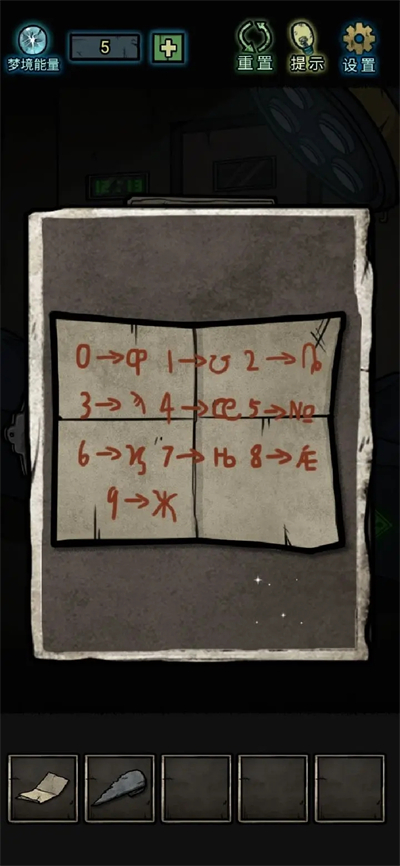 5
梦境能量 重置 提示 设置
12:13
0→ 1→ 2→
3→ 4→ 5→№
6→ 7→Њ 8→Æ
9→Ж